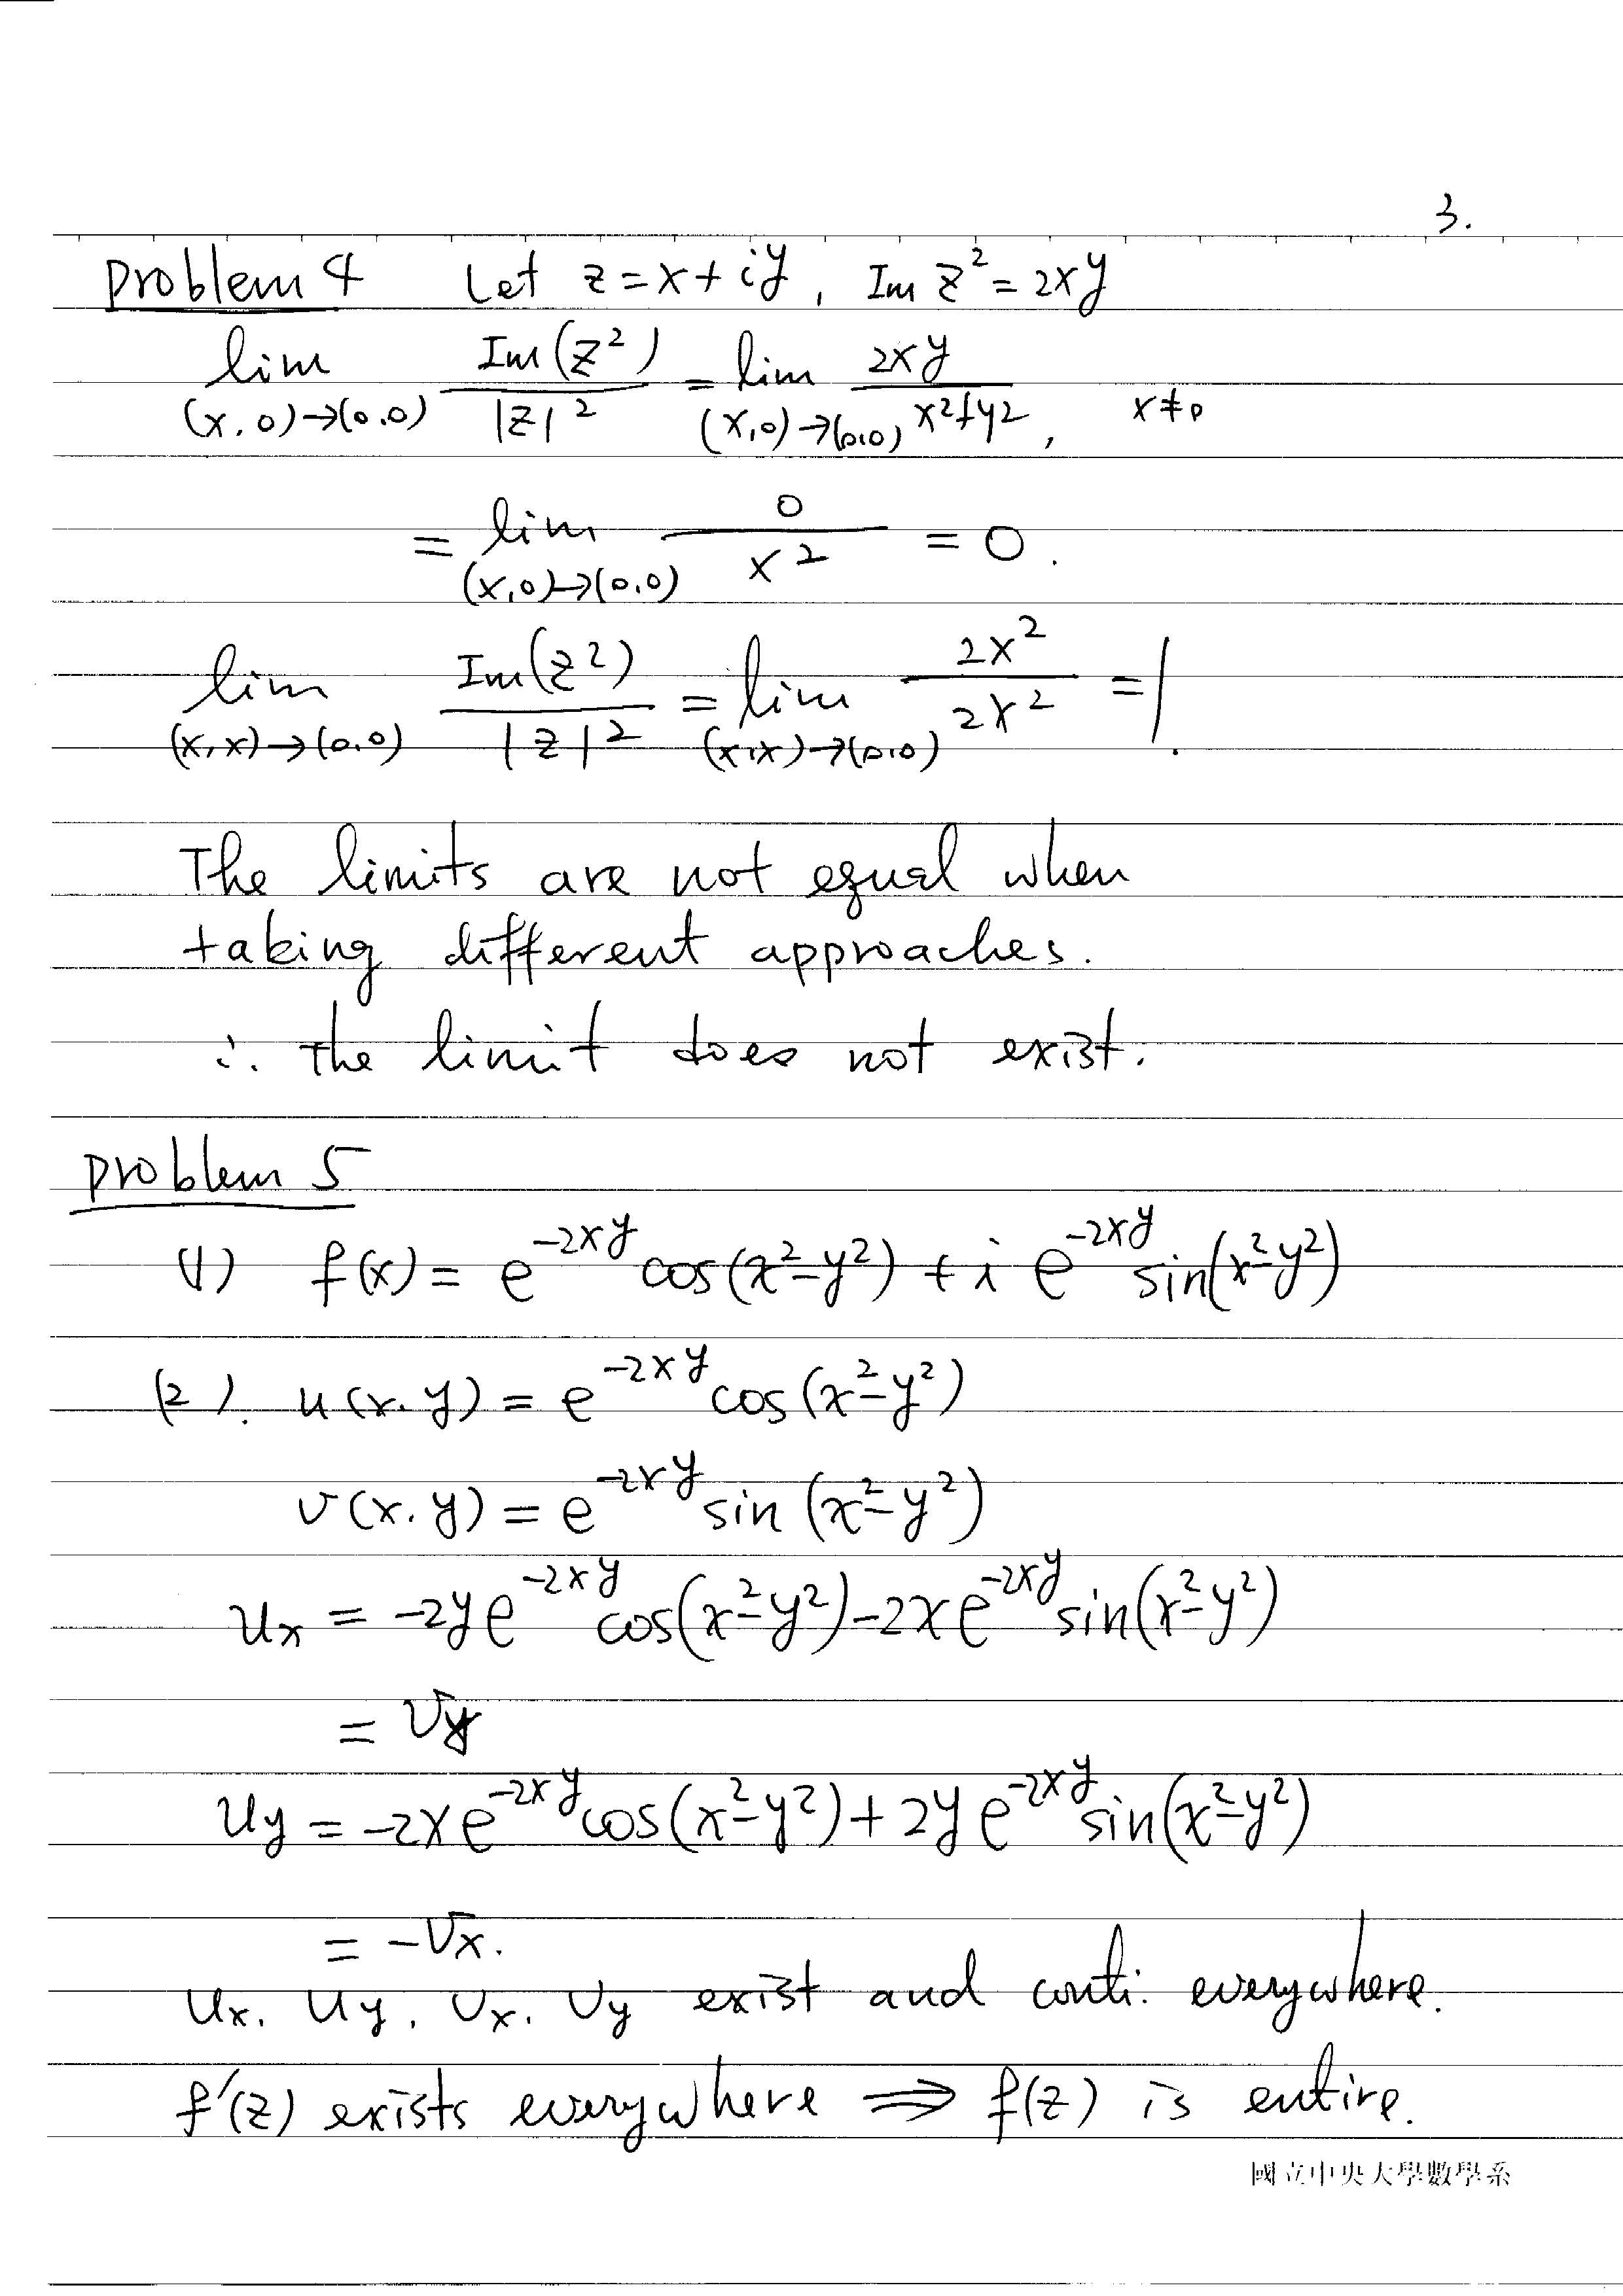 3.
Problem 4 Let z = x + iy, Im z² = 2xy
lim_{(x,0)→(0,0)} Im(z²)/|z|² = lim_{(x,0)→(0,0)} 2xy/(x²+y²), x≠0
= lim_{(x,0)→(0,0)} 0/x² = 0.
lim_{(x,x)→(0,0)} Im(z²)/|z|² = lim_{(x,x)→(0,0)} 2x²/2x² = 1.
The limits are not equal when
taking different approaches.
∴ the limit does not exist.
Problem 5
(1) f(x) = e^{-2xy} cos(x²-y²) + i e^{-2xy} sin(x²-y²)
(2). u(x.y) = e^{-2xy} cos(x²-y²)
v(x.y) = e^{-2xy} sin(x²-y²)
u_x = -2ye^{-2xy} cos(x²-y²) - 2xe^{-2xy} sin(x²-y²)
= v_y
u_y = -2xe^{-2xy} cos(x²-y²) + 2ye^{-2xy} sin(x²-y²)
= -v_x.
u_x. u_y. v_x. v_y exist and conti. everywhere.
f'(z) exists everywhere ⟹ f(z) is entire.
國立中央大學數學系